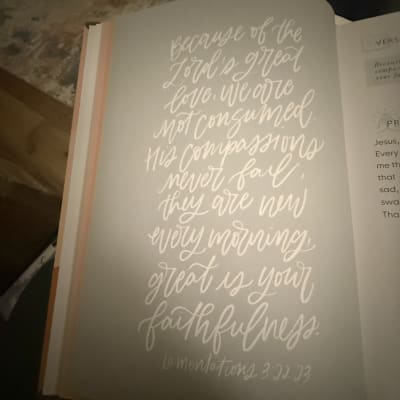 Because of the
Lord's great
love, we are
not consumed.
His compassions
never fail
they are new
every morning,
great is your
faithfulness.
Lamentations 3:22-23
VERS
Because
compas
never fa
PR
Jesus,
Every
me th
that
sad,
swa
Tha